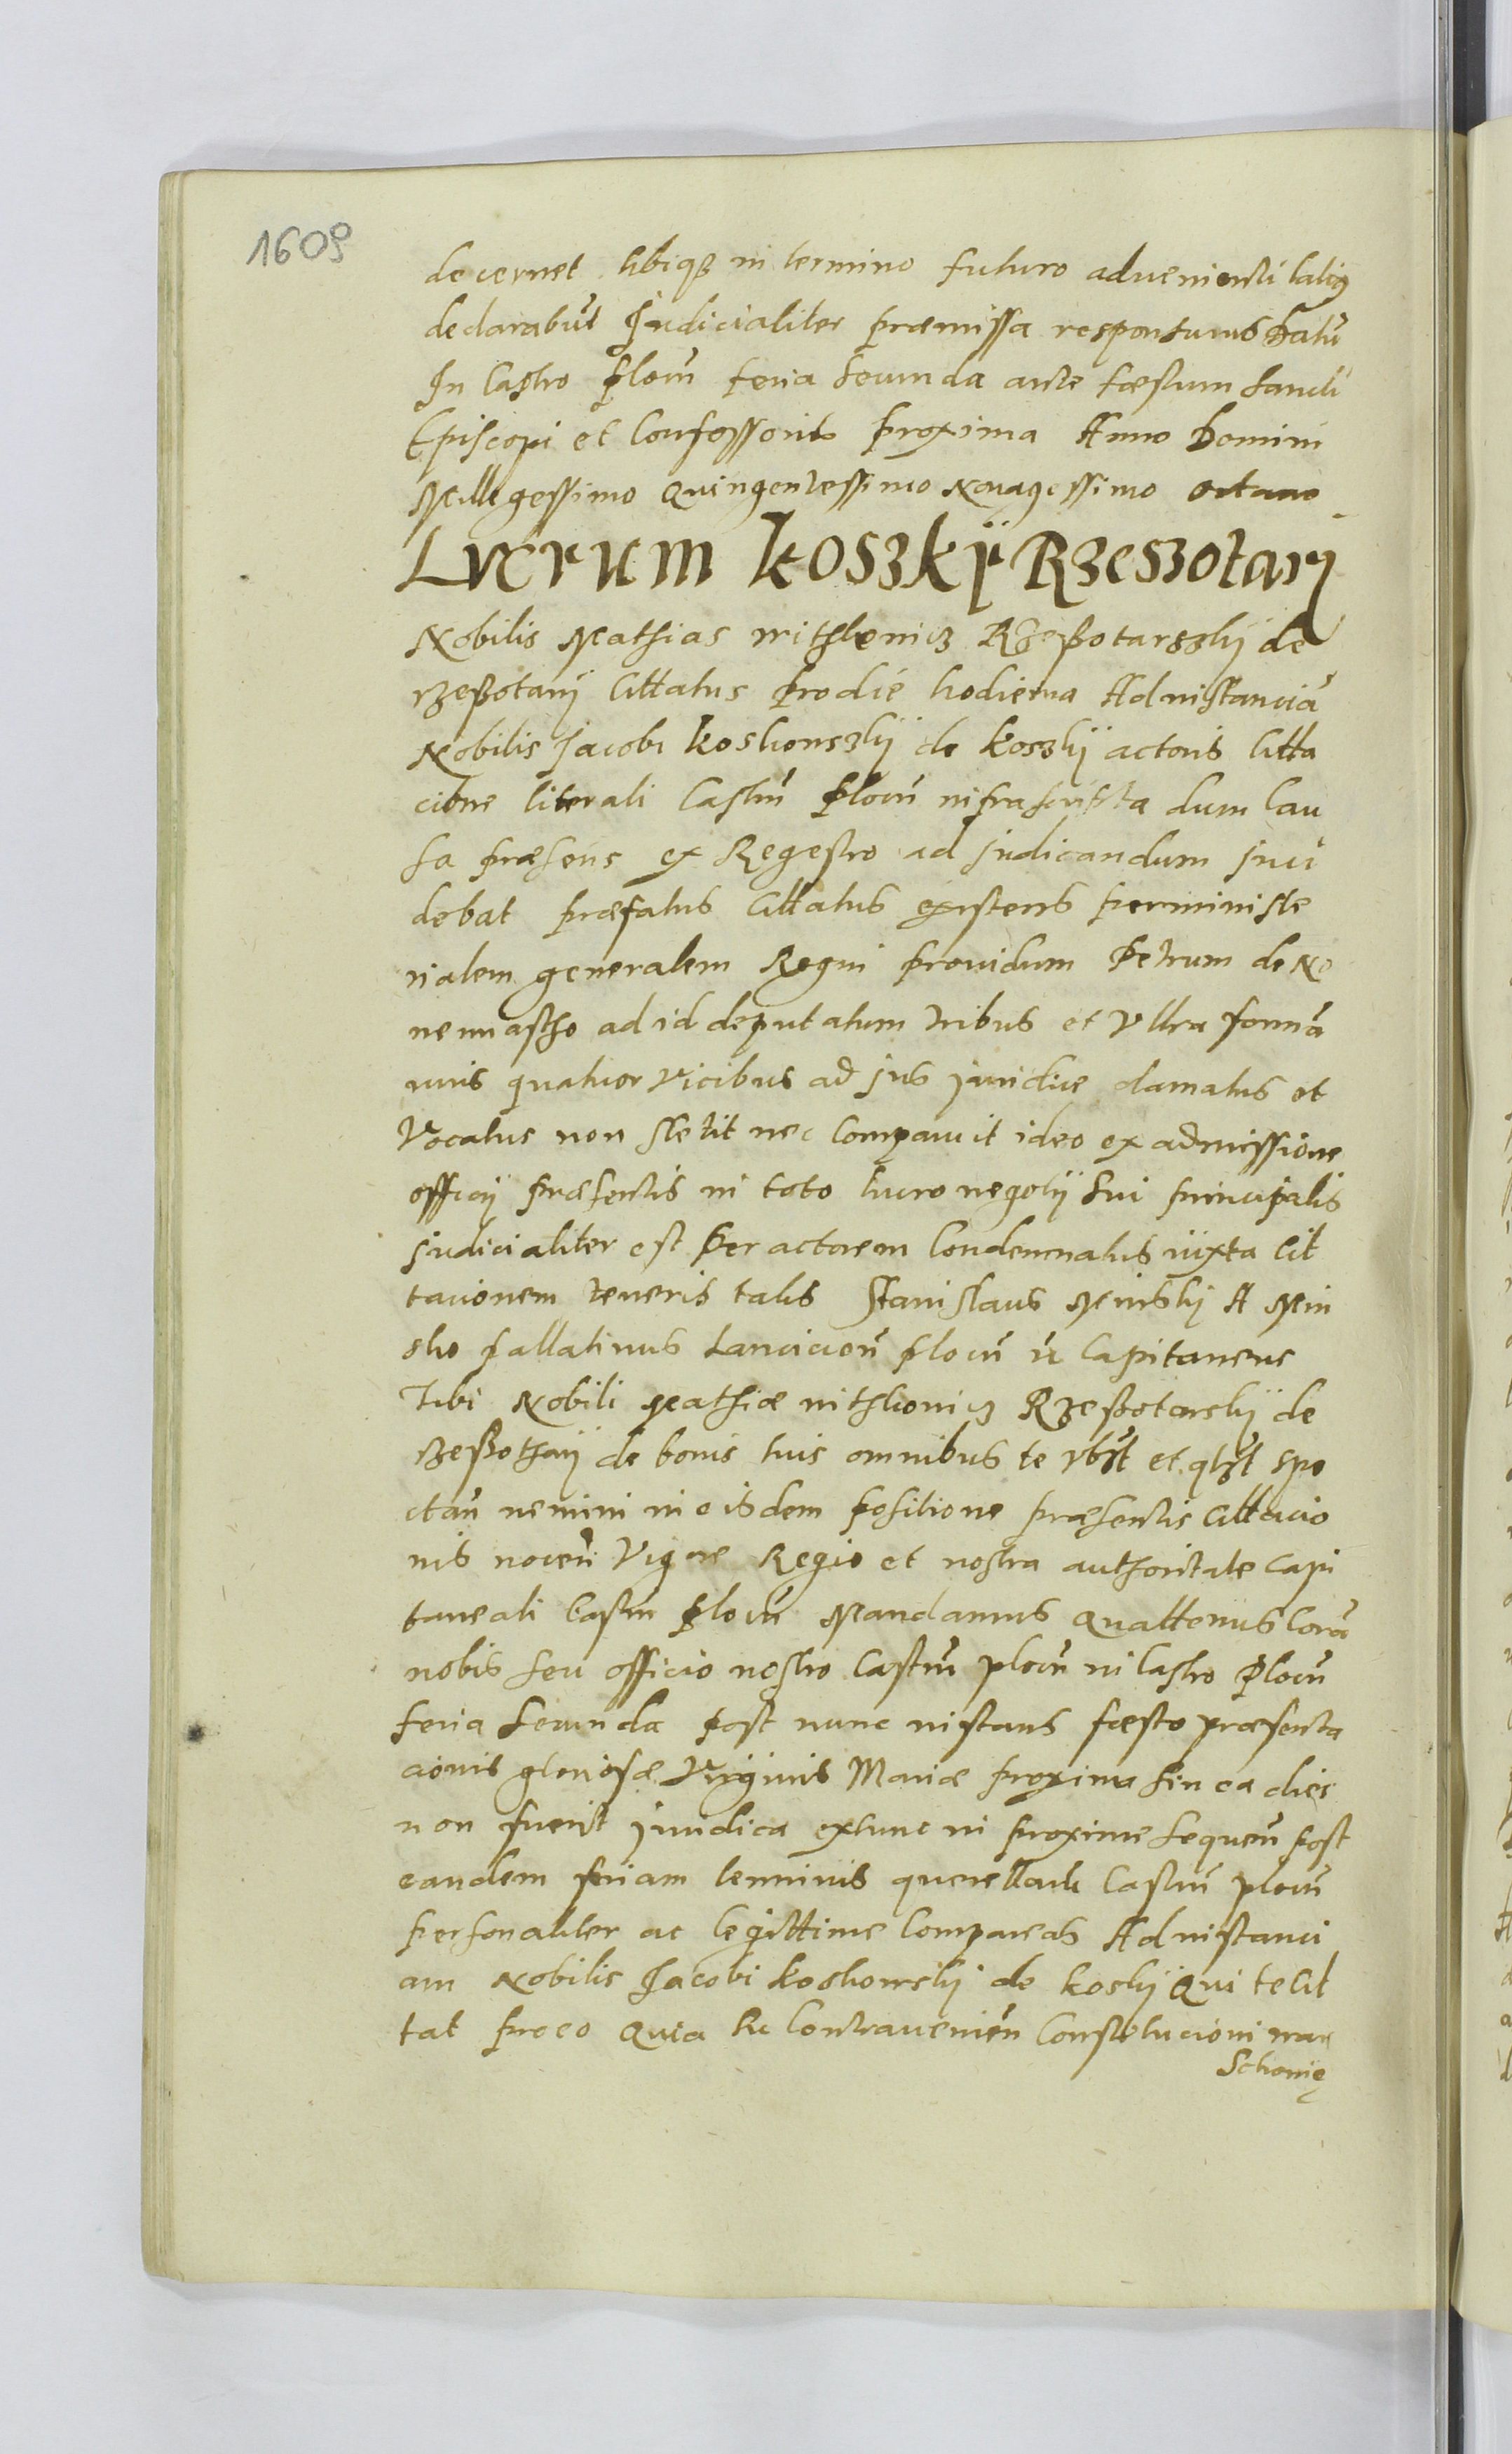 1609
decernet tibiq3 in termino futuro aduenienti talit9
declarabut Judicialiter præmissa responsurus Datũ
In Castro Plocñ feria secunda ante fæstum Sancti
Episcopi et Confessoris proxima Anno Domini
Millegessimo Quingentessimo Nonagessimo octauo
Lucrum Koszkÿ Rzeszotarÿ
Nobilis Mathias Rzeßotarszkÿ de
rzeßotarÿ Cittatus pro die hodierna Ad instanciã
Nobilis Jacobi Koskonszkÿ de Koszkÿ actoris Citta
cione literali Castrñ Plocñ infrascripta dum Cau
sa præsens ex Regestro ad judicandum inci
debat præfatus Cittatus existens per ministe
rialem generalem Regni prouidum Petrum de Ne
ad id deputatum tribus et Vltra formã
iuris quatuor Vicibus ad jus juridice clamatus et
Vocatus non stetit nec Comparuit ideo ex admissione
officij præsentis in toto lucro negotij sui principalis
judicialiter est per actorem Condemnatus iuxta Cit
tacionem teneris talis Stanislaus Minskij A Min
sko Pallatinus Lancicieñ Plocñ Capitaneus
Tibi Nobili Mathiæ Rzeßotarskÿ de
rzeßotharÿ de bonis tuis omnibus te vbist et qlst spe
ctañ nemini in eisdem positione præsentis Cittacio
nis noceñ Vigore Regio et nostra authoritate Capi
taneali Castrñ Plocñ Mandamus Quattenus Corã
nobis seu officio nostro Castrñ plocñ in Castro Plocñ
feria secunda post nunc instans fæsto præsenta
cionis gloriosæ Virginis Mariæ proxima sin ea dies
non fuerit juridica extunc in proxime sequeñ post
eandem feriam terminis querellarũ Castrñ plocñ
personaliter ac legittime Compareas Ad instanci
am Nobilis Jacobi Koskonskÿ de Koskÿ Qui te Cit
tat pro eo Quia tu Contraueniẽn Constitucioni war
Schouię